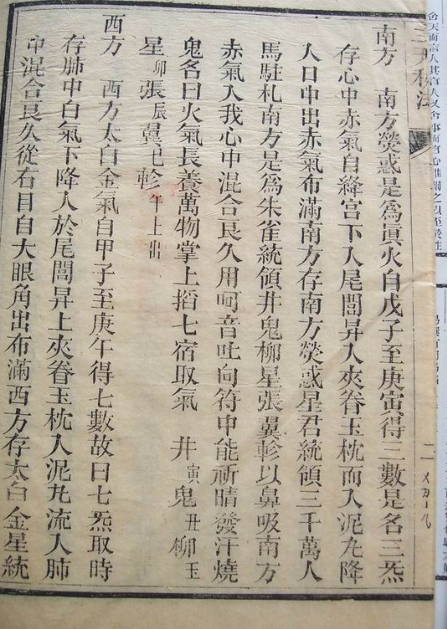 南方 南方熒惑是爲眞火自戊子至庚寅得三數是名三炁
存心中赤氣自絳宮下入尾閭昇入夾脊玉枕而入泥丸降
人口中出赤氣布滿南方存南方熒惑星君統領三千萬人
馬駐札南方是爲朱雀統領井鬼柳星張翼軫以鼻吸南方
赤氣入我心中混合良久用呵音吐向符中能祈晴發汗燒
鬼名曰火氣長養萬物掌上掐七宿取氣 井寅鬼丑柳玉
星卯張辰翼巳軫午上出
西方 西方太白金氣自甲子至庚午得七數故曰七炁取時
存肺中白氣下降人於尾閭昇上夾脊玉枕入泥丸流入肺
中混合良久從右目自大眼角出布滿西方存太白金星統